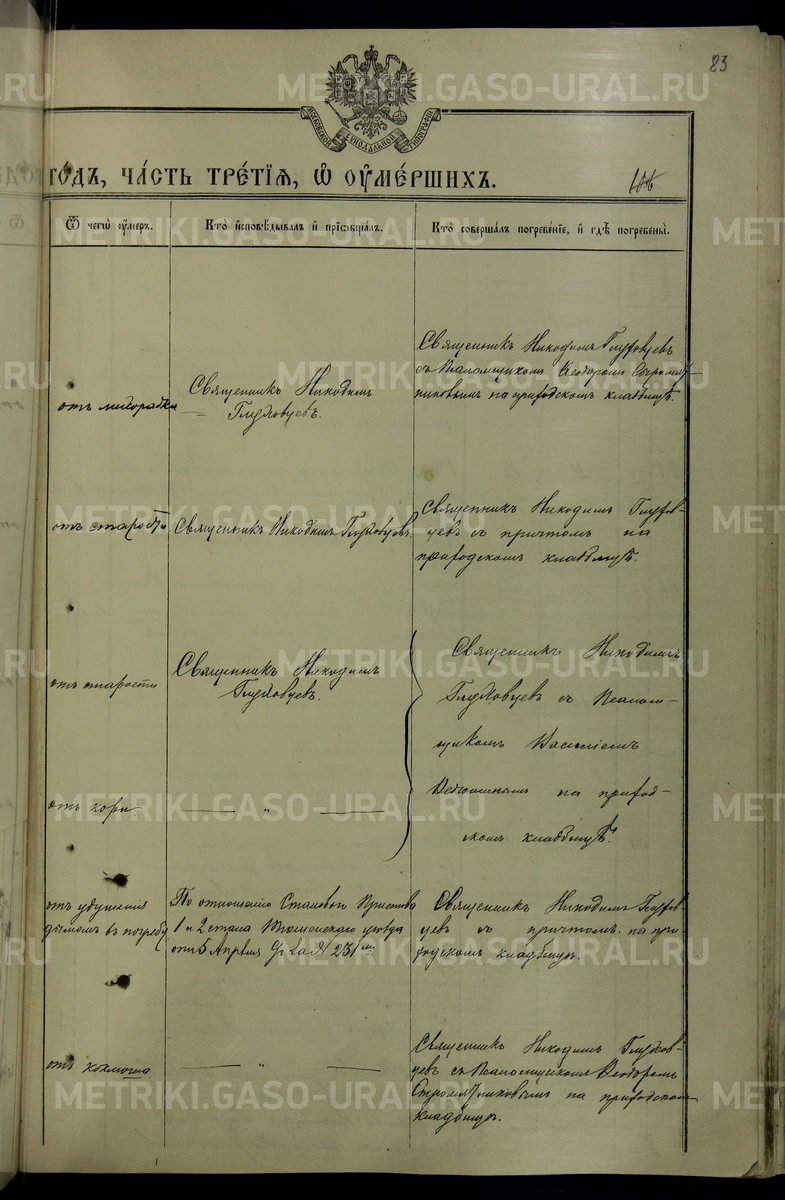 83
МОСКОВСКОЙ СѴНОДАЛЬНОЙ ТИПОГРАФІИ
ГОДЪ, ЧАСТЬ ТРЕТІЯ, Ѽ ОУМЕРШИХЪ.
106
Ѿ чегѡ оумеръ.
Кто исповѣдывалъ и пріѡбщалъ.
Кто совершалъ погребеніе, и гдѣ погребены.
отъ лихорадки
Священникъ Никодимъ
Глуховцевъ.
Священникъ Никодимъ Глуховцевъ
съ Псаломщикомъ Ѳеодоромъ
на приходскомъ кладбищѣ.
отъ старости
Священникъ Никодимъ Глуховцевъ
Священникъ Никодимъ Глухов-
цевъ съ причтомъ на
приходскомъ кладбищѣ.
отъ старости
Священникъ Никодимъ
Глуховцевъ.
Священникъ Никодимъ
Глуховцевъ съ Псалом-
щикомъ Василіемъ
на приход-
скомъ кладбищѣ.
отъ кори
— „ —
отъ удушенія
дымомъ въ погребу
По отношенію Становаго Пристава
1 и 2 стана уѣзда
отъ 5 Апрѣля за № 231
Священникъ Никодимъ Глухов-
цевъ съ причтомъ на при-
ходскомъ кладбищѣ.
отъ
— „ —
Священникъ Никодимъ Глухов-
цевъ съ Псаломщикомъ Ѳеодоромъ
на приходскомъ
кладбищѣ.
METRIKI.GASO-URAL.RU